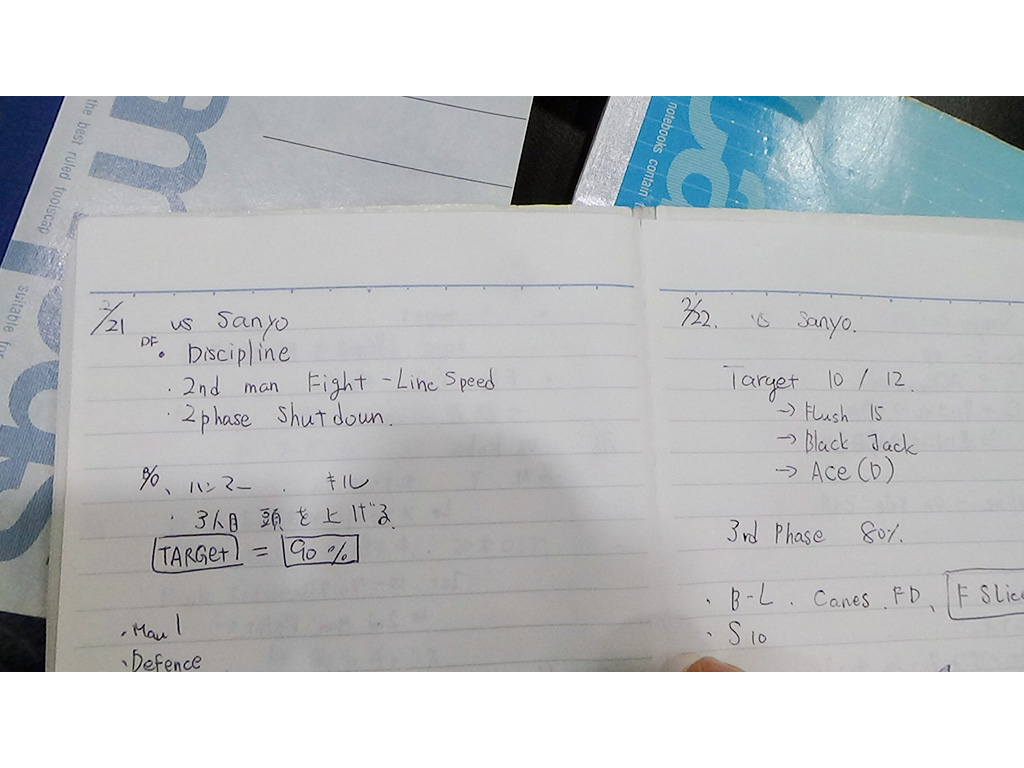 the best ruled foolscap
suitable for
notebooks contain
2/21 vs Sanyo
DF
・Discipline
・2nd man Fight - Line Speed
・2phase Shutdown.
B/O、ハンマー . キル
・3人目 頭を上げる.
TARGET = 90%
・Maul
・Defence
2/22. vs Sanyo.
Target 10 / 12.
→ Flush 15
→ Black Jack
→ Ace (D)
3rd Phase 80%.
・B-L . Canes . FD、 F Slice
・S10